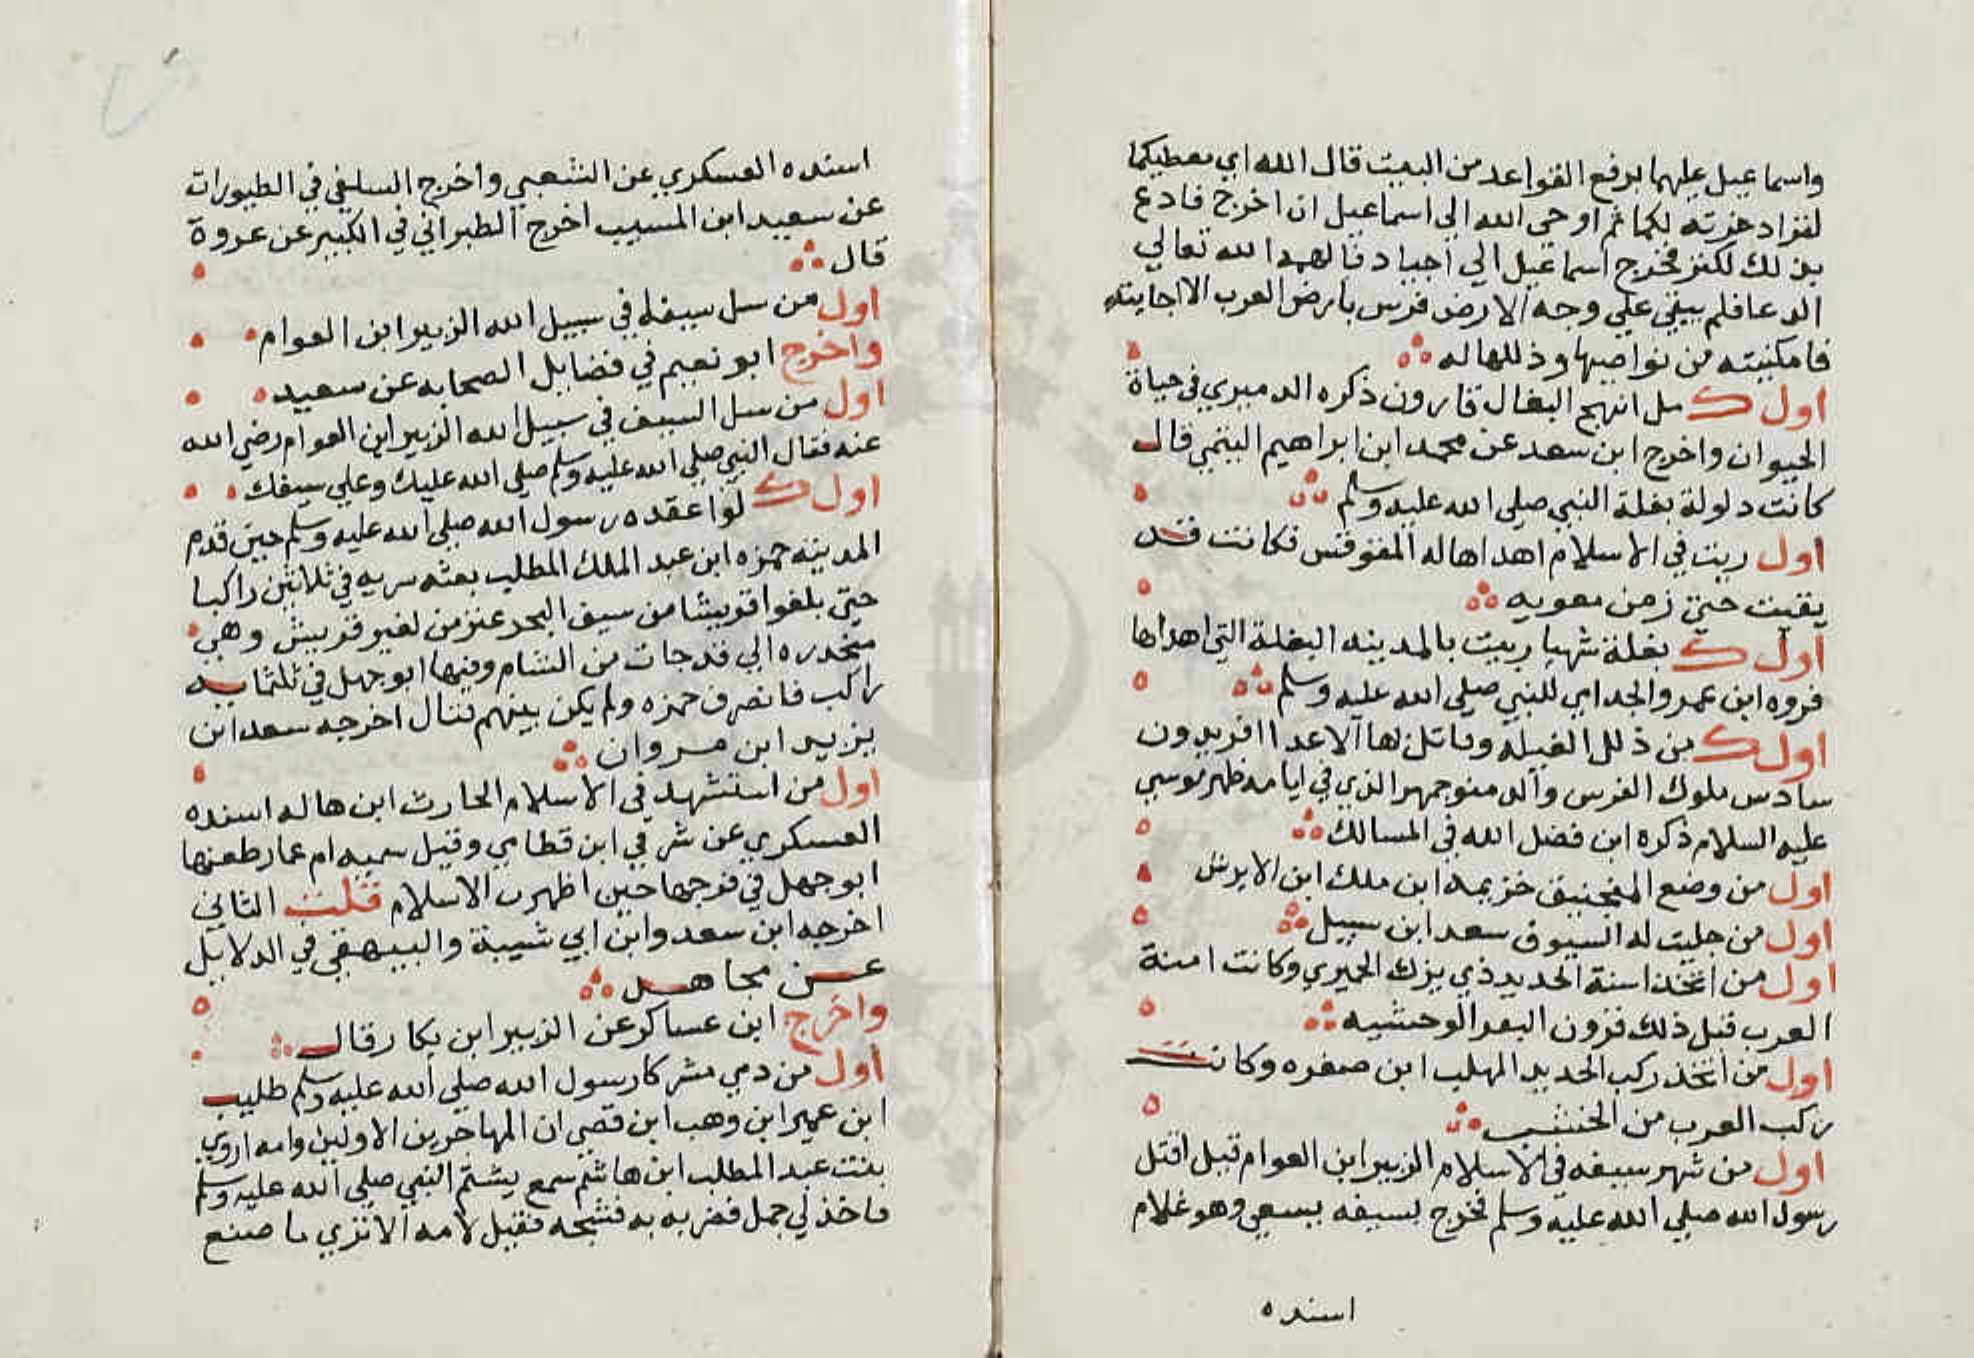 واسماعيل عليهما برفع القواعد من البيت قال الله اي معطيكما
لفزاد خزته لكما ثم اوحي الله الي اسماعيل ان اخرج فادع
بذلك لكنز فخرج اسماعيل الي اجياد فالهمه الله تعالي
الدعا فلم يبقي علي وجه الارض فرس بارض العرب الا اجابته
فامكنيته من نواصيها وذللها له
اول ك مل انهج البغال قارون ذكره الدميري في حياة
الحيوان واخرج ابن سعد عن محمد ابن ابراهيم التيمي قال
كانت دلولة بغلة النبي صلي الله عليه وسلم
اول ريت في الاسلام اهداها له المقوقس فكانت قد
بقيت حتي زمن معويه
اول ك بغلة شهبا رييت بالمدينه البغلة التي اهداها
فروه ابن عمرو الجدامي للنبي صلي الله عليه وسلم
اول ك من ذلل الفيلة وقاتل لها الاعدا افريدون
سادس ملوك الفرس وآلد منوجمهر الذي في ايامه ظهر موسي
عليه السلام ذكره ابن فضل الله في المسالك
اول من وضع المنجنيق خزيمه ابن ملك ابن الابرش
اول من جليت له السيوف سعد ابن سبيل
اول من اتخذ اسنة الحديد ذي يزك الحميري وكانت امنة
العرب قبل ذلك قزون البقر الوحشيه
اول من اتخذ ركب الحديد المهلب ابن صفره وكانت
ركب العرب من الخشب
اول من شهر سيفه في الاسلام الزبير ابن العوام قبل اقتل
رسول الله صلي الله عليه وسلم فخرج بسيفه يسعي وهو غلام
اسنده
اسنده العسكري عن الشعبي واخرج السليفي في الطيورات
عن سعيد ابن المسيب اخرج الطبراني في الكبير عن عروة
قال
اول من سل سيفه في سبيل الله الزبير ابن العوام
واخرج ابو نعيم في فضايل الصحابه عن سعيد
اول من سل السيف في سبيل الله الزبير ابن العوام رضي الله
عنه فقال النبي صلي الله عليه وسلم صلي الله عليك وعلي سيفك
اول ك لوا عقده رسول الله صلي الله عليه وسلم حين قدم
المدينه حمزه ابن عبد الملك المطلب بعثه سريه في ثلاثين راكبا
حتي بلغوا قريبشا من سيف البحر عنزمن لغير قريش وهي
منحدره الي قد جات من الشام وفيها ابو جهل في ثلثمايه
راكب فانصرف حمزه ولم يكن بينهم قتال اخرجه سعد ابن
يزيد ابن مروان
اول من استشهد في الاسلام الحارث ابن هاله اسنده
العسكري عن شرفي ابن قطامي وقيل سميه ام عمار طعنها
ابو جهل في فرجها حين اظهرت الاسلام قلت الثاني
اخرجه ابن سعد وابن ابي شيبة والبيهقي في الدلايل
عن مجاهد
واخرج ابن عساكر عن الزبير ابن بكار قال
اول من دمي مشركا رسول الله صلي الله عليه وسلم طليب
ابن عمير ابن وهب ابن قصي ان المهاجرين الاولين وامه اروي
بنت عبد المطلب ابن هاشم سمع يشتم النبي صلي الله عليه وسلم
فاخذ لي جمل فضربه به فشجه فقيل لامه الا تزي ما صنع